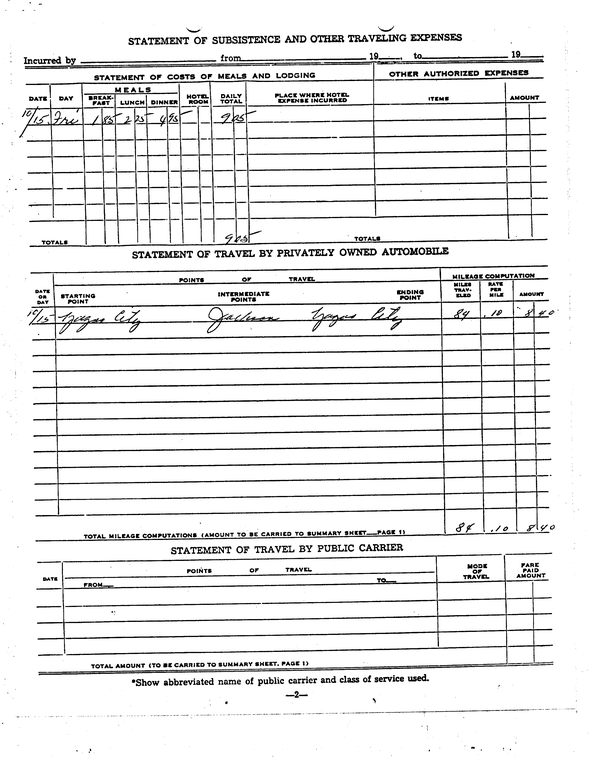 STATEMENT OF SUBSISTENCE AND OTHER TRAVELING EXPENSES
Incurred by from 19 , to 19
STATEMENT OF COSTS OF MEALS AND LODGING OTHER AUTHORIZED EXPENSES
DATE DAY MEALS HOTEL ROOM DAILY TOTAL PLACE WHERE HOTEL EXPENSE INCURRED ITEMS AMOUNT
BREAK-FAST LUNCH DINNER
10/15 Fri 1 85 2 25 4 95 9 05
TOTALS 9 05 TOTALS
STATEMENT OF TRAVEL BY PRIVATELY OWNED AUTOMOBILE
POINTS OF TRAVEL MILEAGE COMPUTATION
DATE OR DAY STARTING POINT INTERMEDIATE POINTS ENDING POINT MILES TRAV-ELED RATE PER MILE AMOUNT
10/15 City Jackson City 84 .10 8 40
TOTAL MILEAGE COMPUTATIONS (AMOUNT TO BE CARRIED TO SUMMARY SHEET—PAGE 1) 84 .10 8 40
STATEMENT OF TRAVEL BY PUBLIC CARRIER
DATE POINTS OF TRAVEL MODE OF TRAVEL FARE PAID AMOUNT
FROM TO
TOTAL AMOUNT (TO BE CARRIED TO SUMMARY SHEET, PAGE 1)
*Show abbreviated name of public carrier and class of service used.
—2—